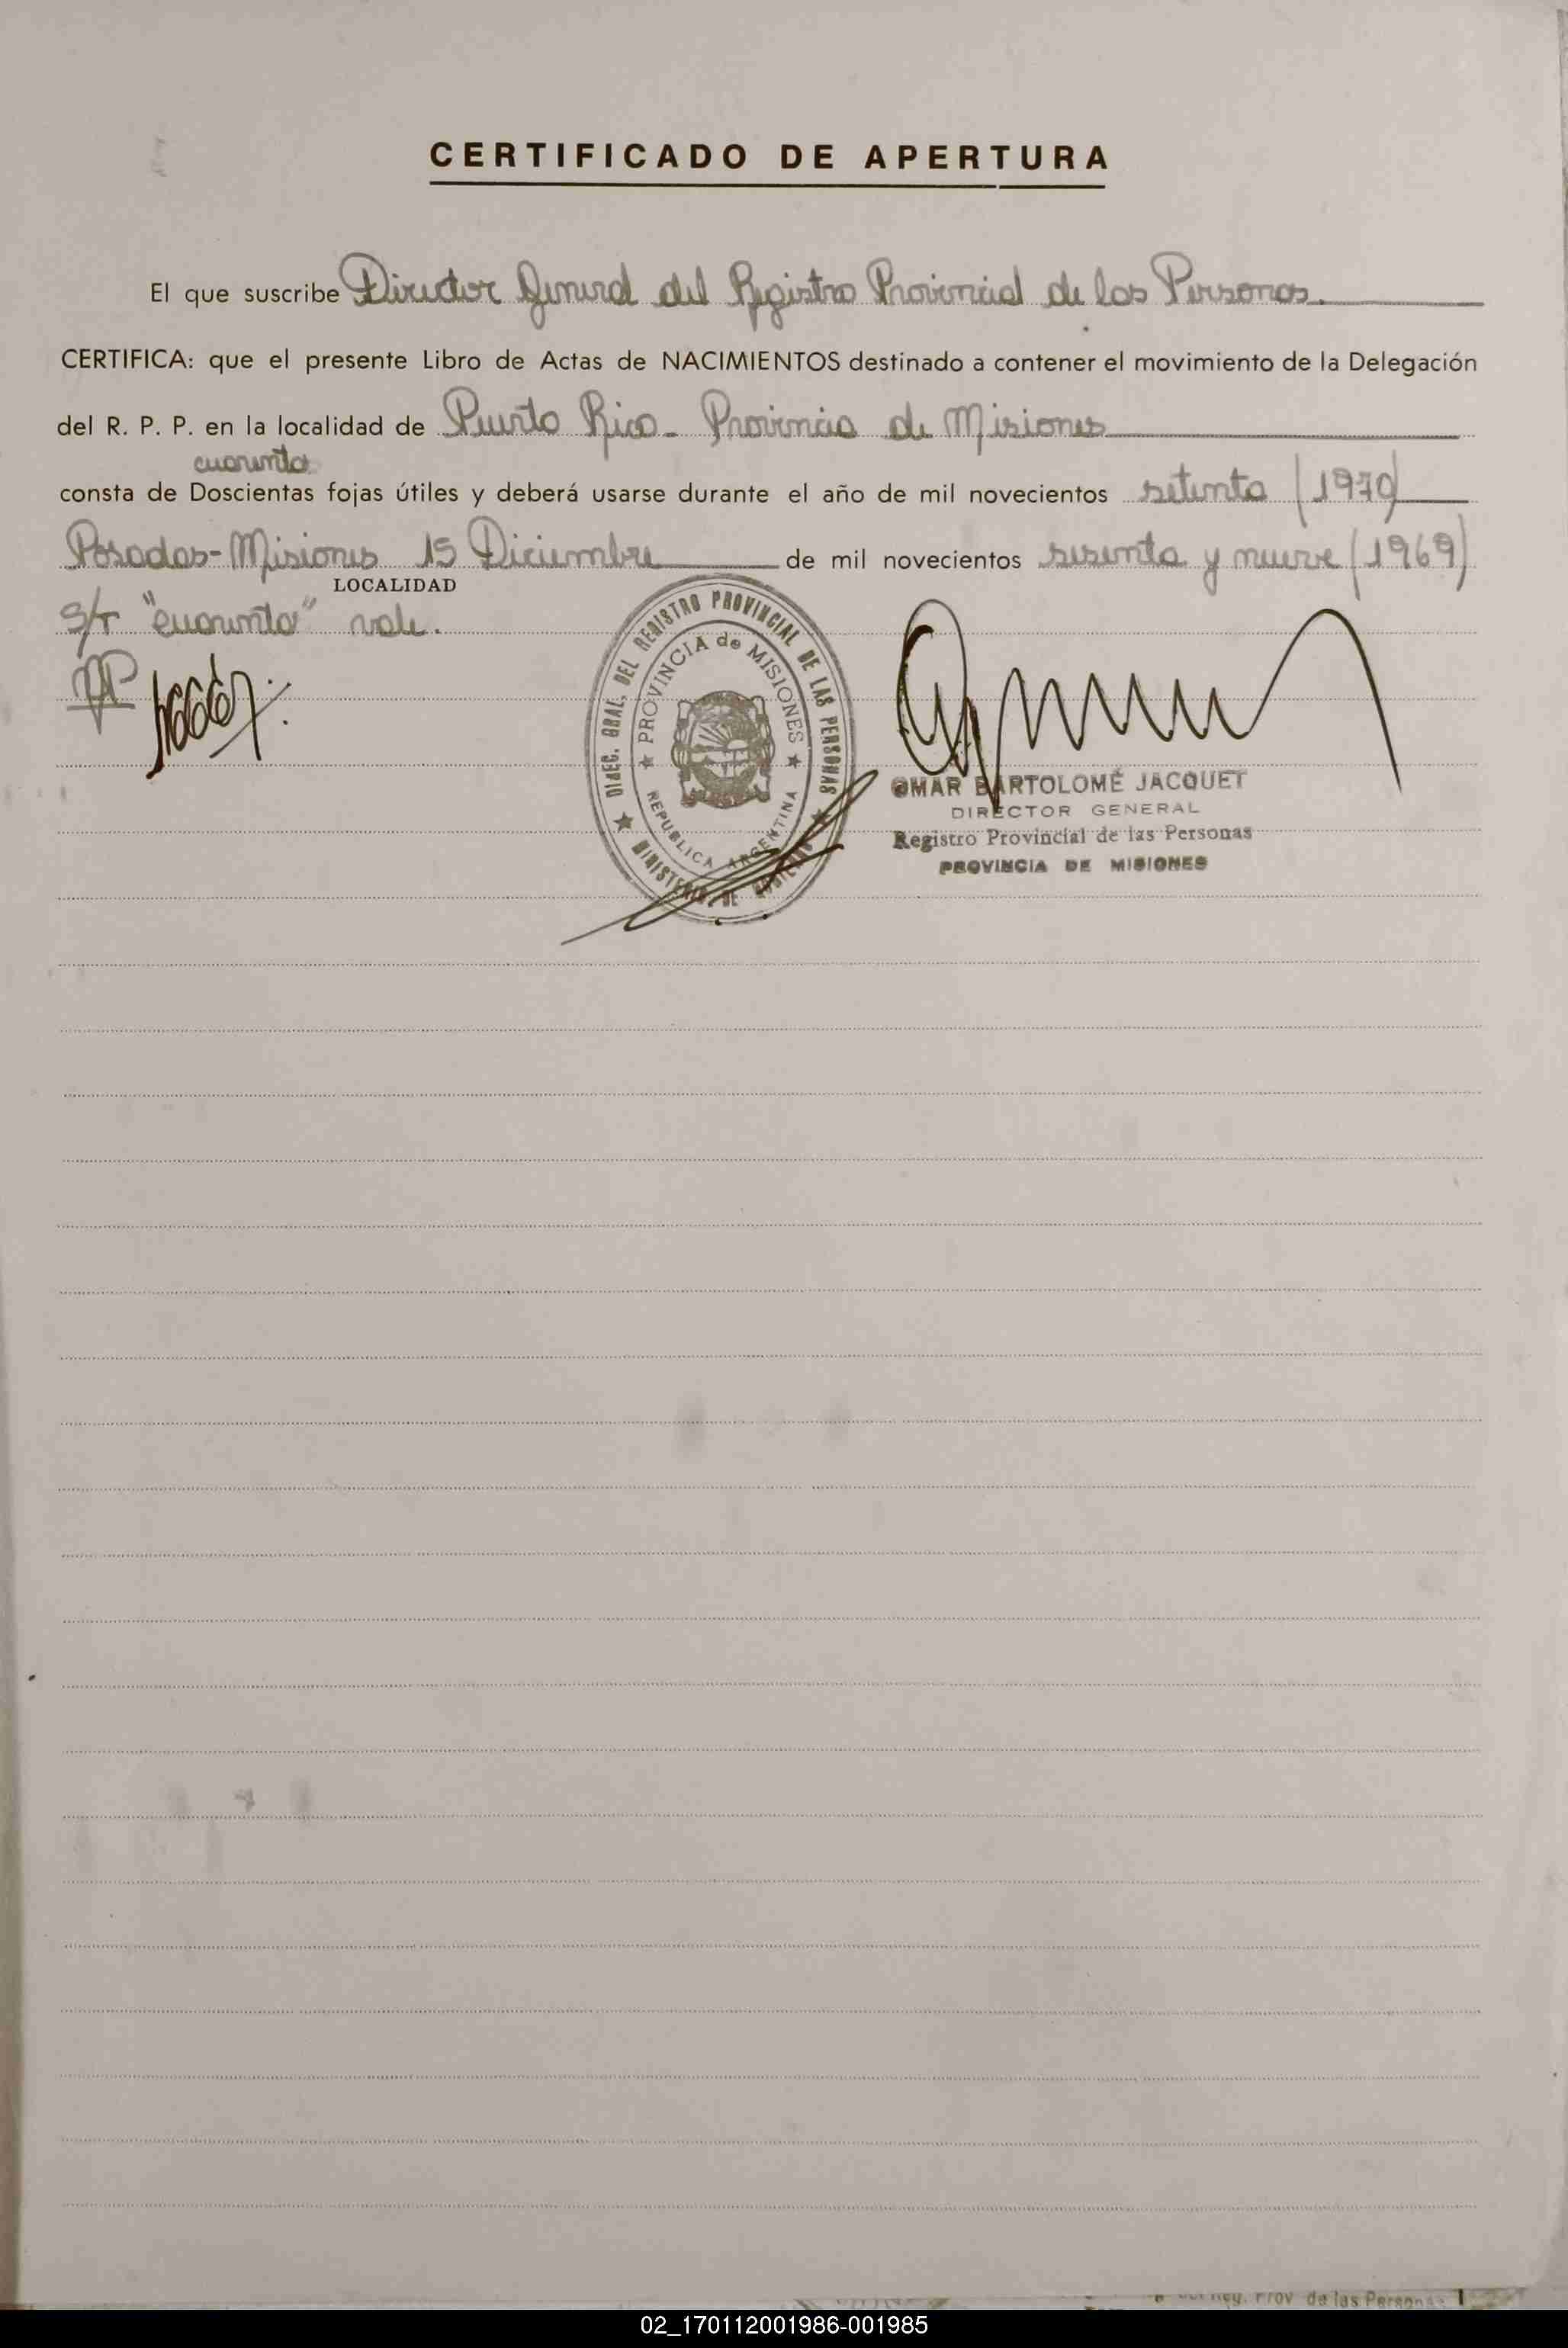 CERTIFICADO DE APERTURA
El que suscribe Director General del Registro Provincial de las Personas.
CERTIFICA: que el presente Libro de Actas de NACIMIENTOS destinado a contener el movimiento de la Delegación
del R. P. P. en la localidad de Puerto Rico - Provincia de Misiones
cuarenta
consta de Doscientas fojas útiles y deberá usarse durante el año de mil novecientos setenta (1970)
Posadas - Misiones 15 Diciembre de mil novecientos sesenta y nueve (1969)
LOCALIDAD
S/r "cuarenta" vale.
DIREC. GRAL. DEL REGISTRO PROVINCIAL DE LAS PERSONAS
PROVINCIA de MISIONES
REPUBLICA ARGENTINA
MINISTERIO DE GOBIERNO
OMAR BARTOLOMÉ JACQUET
DIRECTOR GENERAL
Registro Provincial de las Personas
PROVINCIA DE MISIONES
Prov de las Persona
02_170112001986-001985